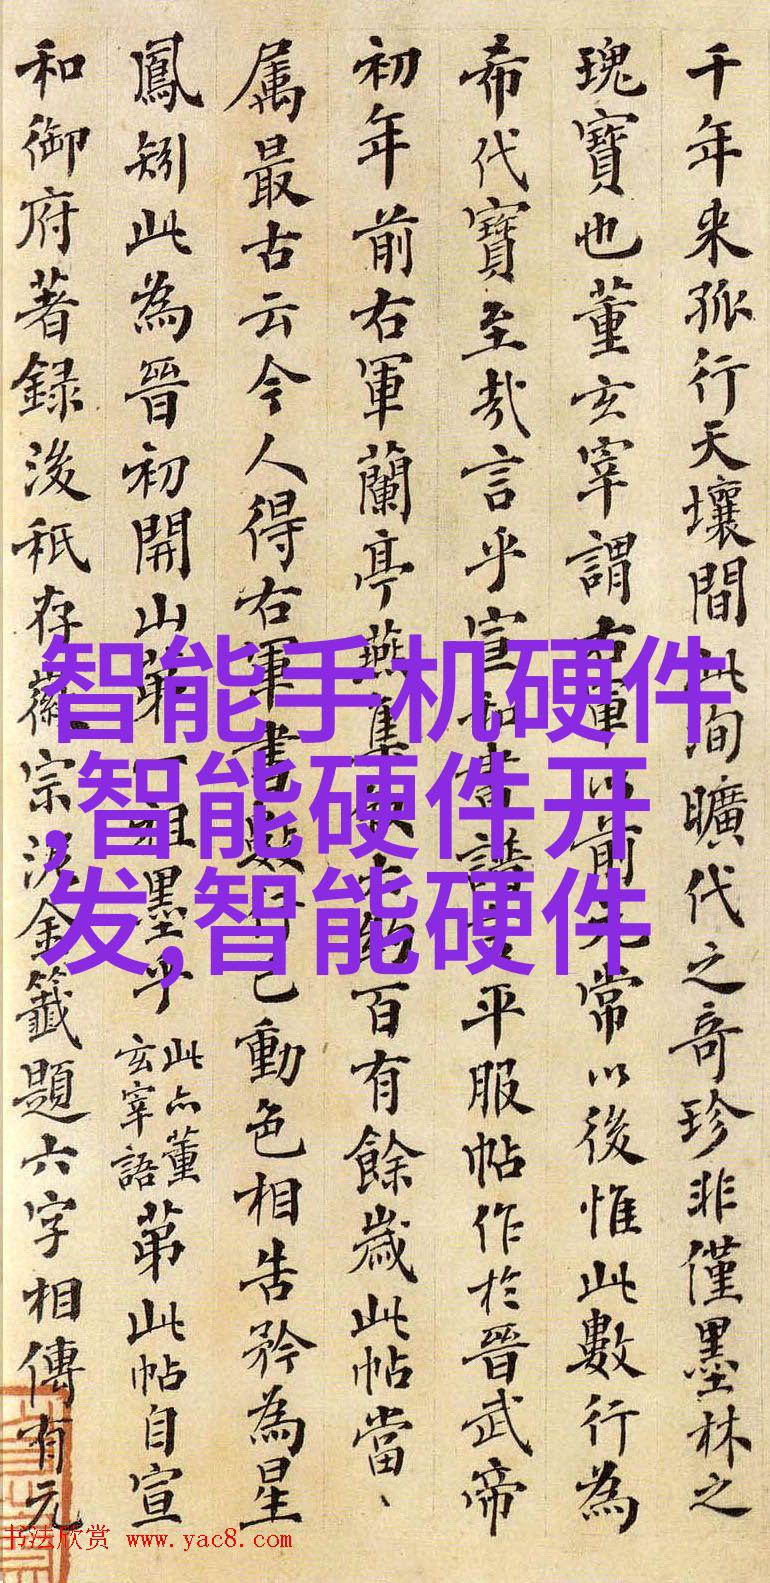 千年来孤行天壤間此洵曠代之奇珍非僅墨林之
瑰寶也董玄宰謂右軍以前元常以後惟此數行為
希代寶至哉言乎宣和書譜平服帖作於晉武帝
初年前右軍蘭亭燕集大約百有餘歲此帖當、
属最古云今人得右軍書數行已動色相告矜為星
鳳矧此為晉初開山第一祖墨乎此亦董玄宰語第此帖自宣
和御府著録後秖存徽宗泥金籤題六字相傳有元
智能手机硬件
,智能硬件开
发,智能硬件
书法欣赏 www.yac8.com